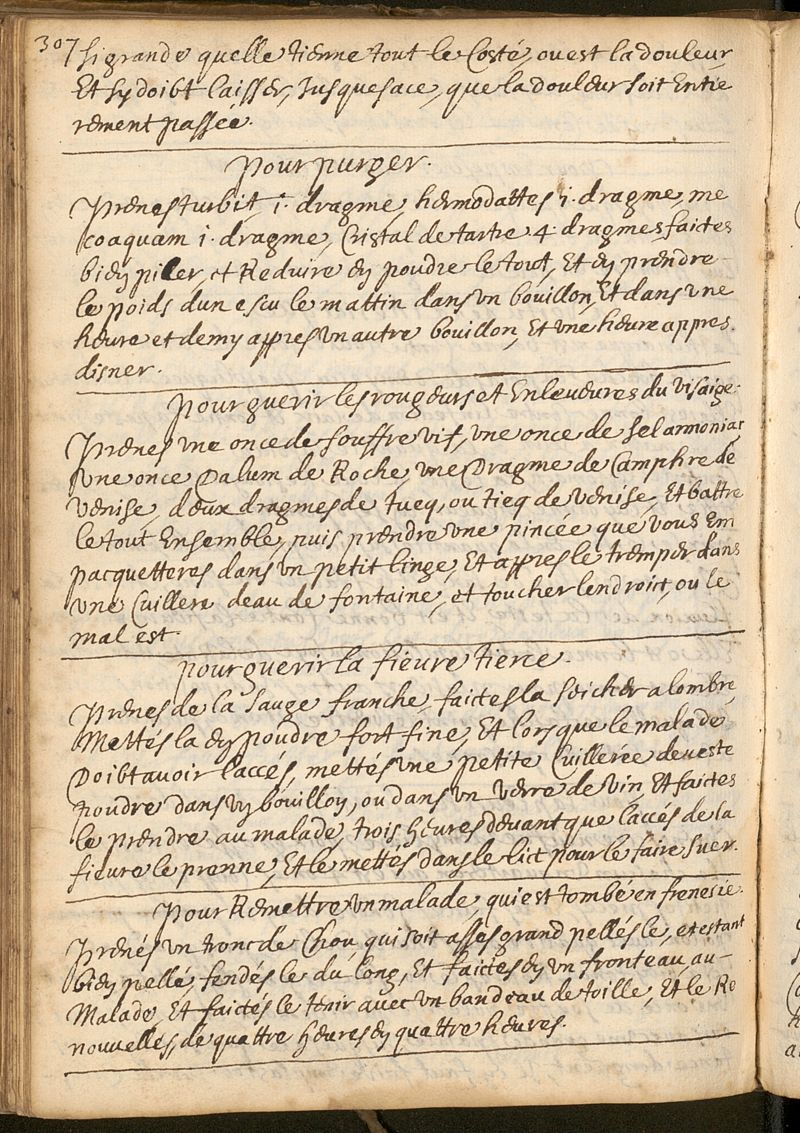 307 si grande quelle tienne tout le Costé, ou est la douleur
Et sy doibt laisser, Jusquesace, que la douleur soit Entie
rement passée.
Pour purger.
Prenes turbit, i. dragme, hermodattes i. dragme, me
coaquam i. dragme, Cristal de tartre 4. dragmes, faictes
bien piler, et Reduire en poudre le tout, Et en prendre
le poids dun escu le mattin dans un bouillon, Et dans une
heure et demy appres un autre bouillon, Et une heure appres
disner.
Pour guerir les rougeurs et Enleueures du visaige.
Prenes une once de souffre vif, une once de sel armoniac
une once Dalum de Roche, une Dragme de Camphre de
venise, deux dragmes de tucq, ou ticq de venise, Et battre
le tout Ensemble, puis prendre une pincée que vous Em
pacquetteres dans un petit linge, Et appres le tremper dans
une Cuillere deau de fontaine, et toucher lendroict, ou le
mal est.
Pour guerir la fieure tierce.
Prenes de la sauge franche, faictes la seicher a lombre,
Mettés la en poudre fort fine, Et lors que le malade
Doibt auoir laccés, mettés une petite Cuillerée de ceste
poudre dans un bouillon, ou dans un verre de vin, Et faictes
le prendre au malade, trois heures deuant que laccés de la
fieure le prenne, Et le mettés dans le lict pour le faire suer.
Pour Remettre un malade, qui est tombé en frenesie.
Prenés un tronc de Chou, qui soit asses grand pellés le, et estant
bien pellé, fendés le du long, Et faictes en un fronteau, au
Malade, Et faictés le tenir auec un bandeau de toille, Et le Re
nouuellés, de quattre heures en quattre heures.